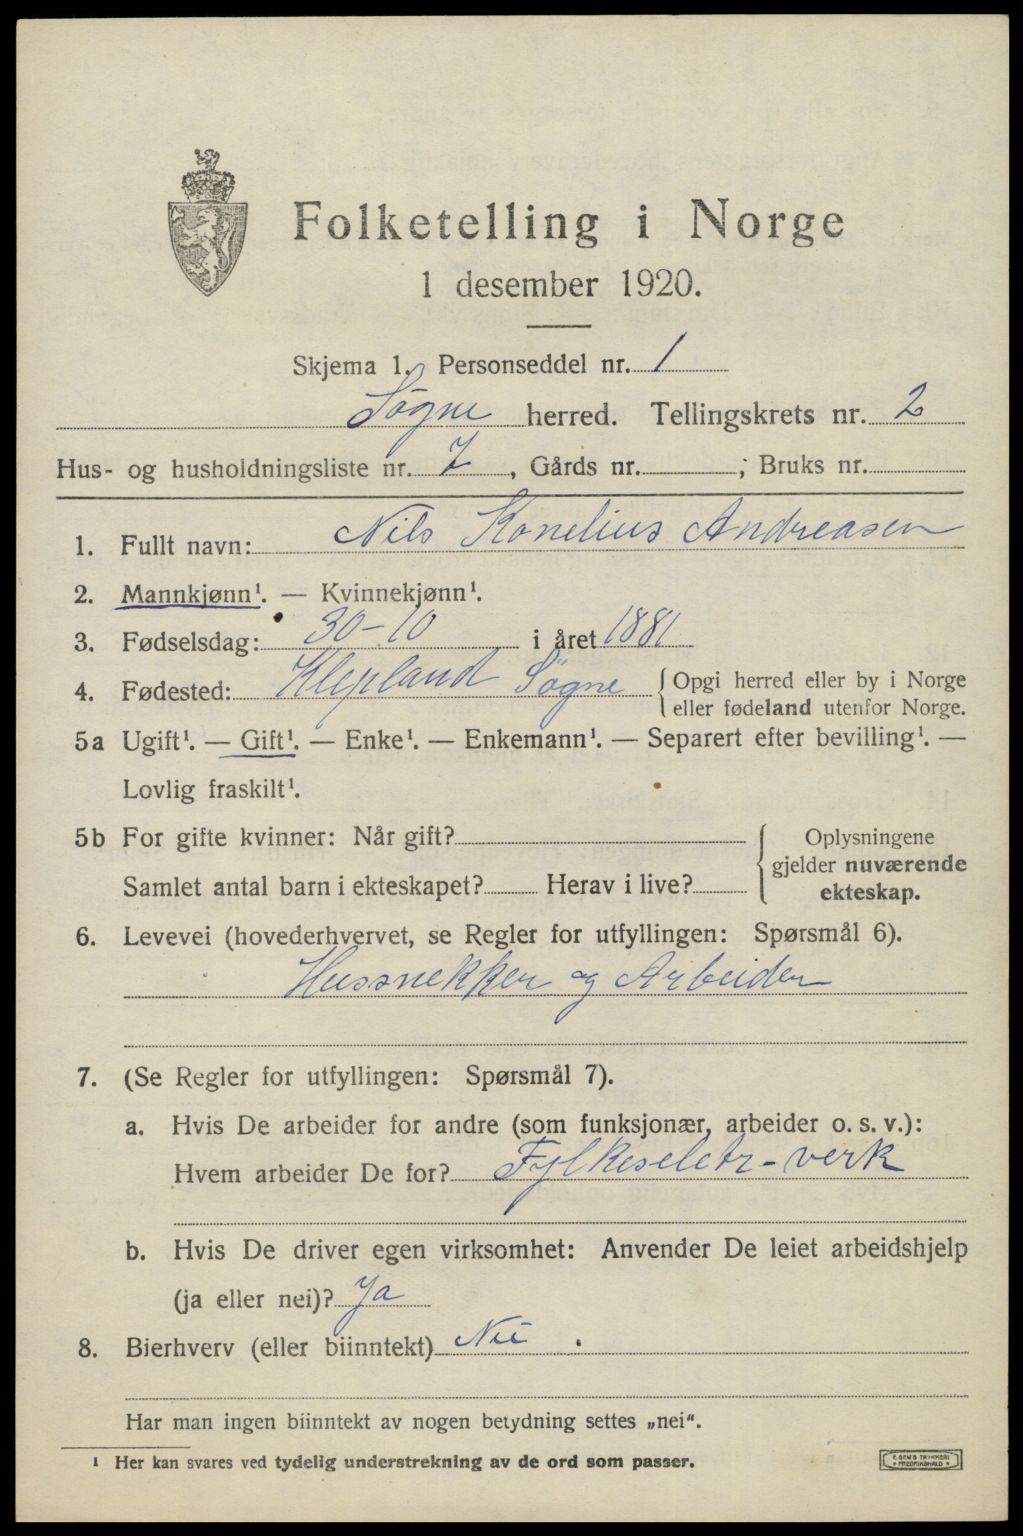 Folketelling i Norge
1 desember 1920.
Skjema 1. Personseddel nr. 1
Søgne herred. Tellingskrets nr. 2
Hus- og husholdningsliste nr. 7, Gårds nr. ; Bruks nr.
1. Fullt navn: Nils Konelius Andreasen
2. Mannkjønn¹. — Kvinnekjønn¹.
3. Fødselsdag: 30-10 i året 1881
4. Fødested: Klepland Søgne { Opgi herred eller by i Norge
eller fødeland utenfor Norge.
5a Ugift¹. — Gift¹. — Enke¹. — Enkemann¹. — Separert efter bevilling¹. —
Lovlig fraskilt¹.
5b For gifte kvinner: Når gift? { Oplysningene
gjelder nuværende
Samlet antal barn i ekteskapet? Herav i live? ekteskap.
6. Levevei (hovederhvervet, se Regler for utfyllingen: Spørsmål 6).
Hussnekker og Arbeider
7. (Se Regler for utfyllingen: Spørsmål 7).
a. Hvis De arbeider for andre (som funksjonær, arbeider o. s. v.):
Hvem arbeider De for? Fylkeseletr-verk
b. Hvis De driver egen virksomhet: Anvender De leiet arbeidshjelp
(ja eller nei)? Ja
8. Bierhverv (eller biinntekt) Nei
Har man ingen biinntekt av nogen betydning settes „nei".
¹ Her kan svares ved tydelig understrekning av de ord som passer.
E. SEM'S TRYKKERI
FREDRIKSHALD